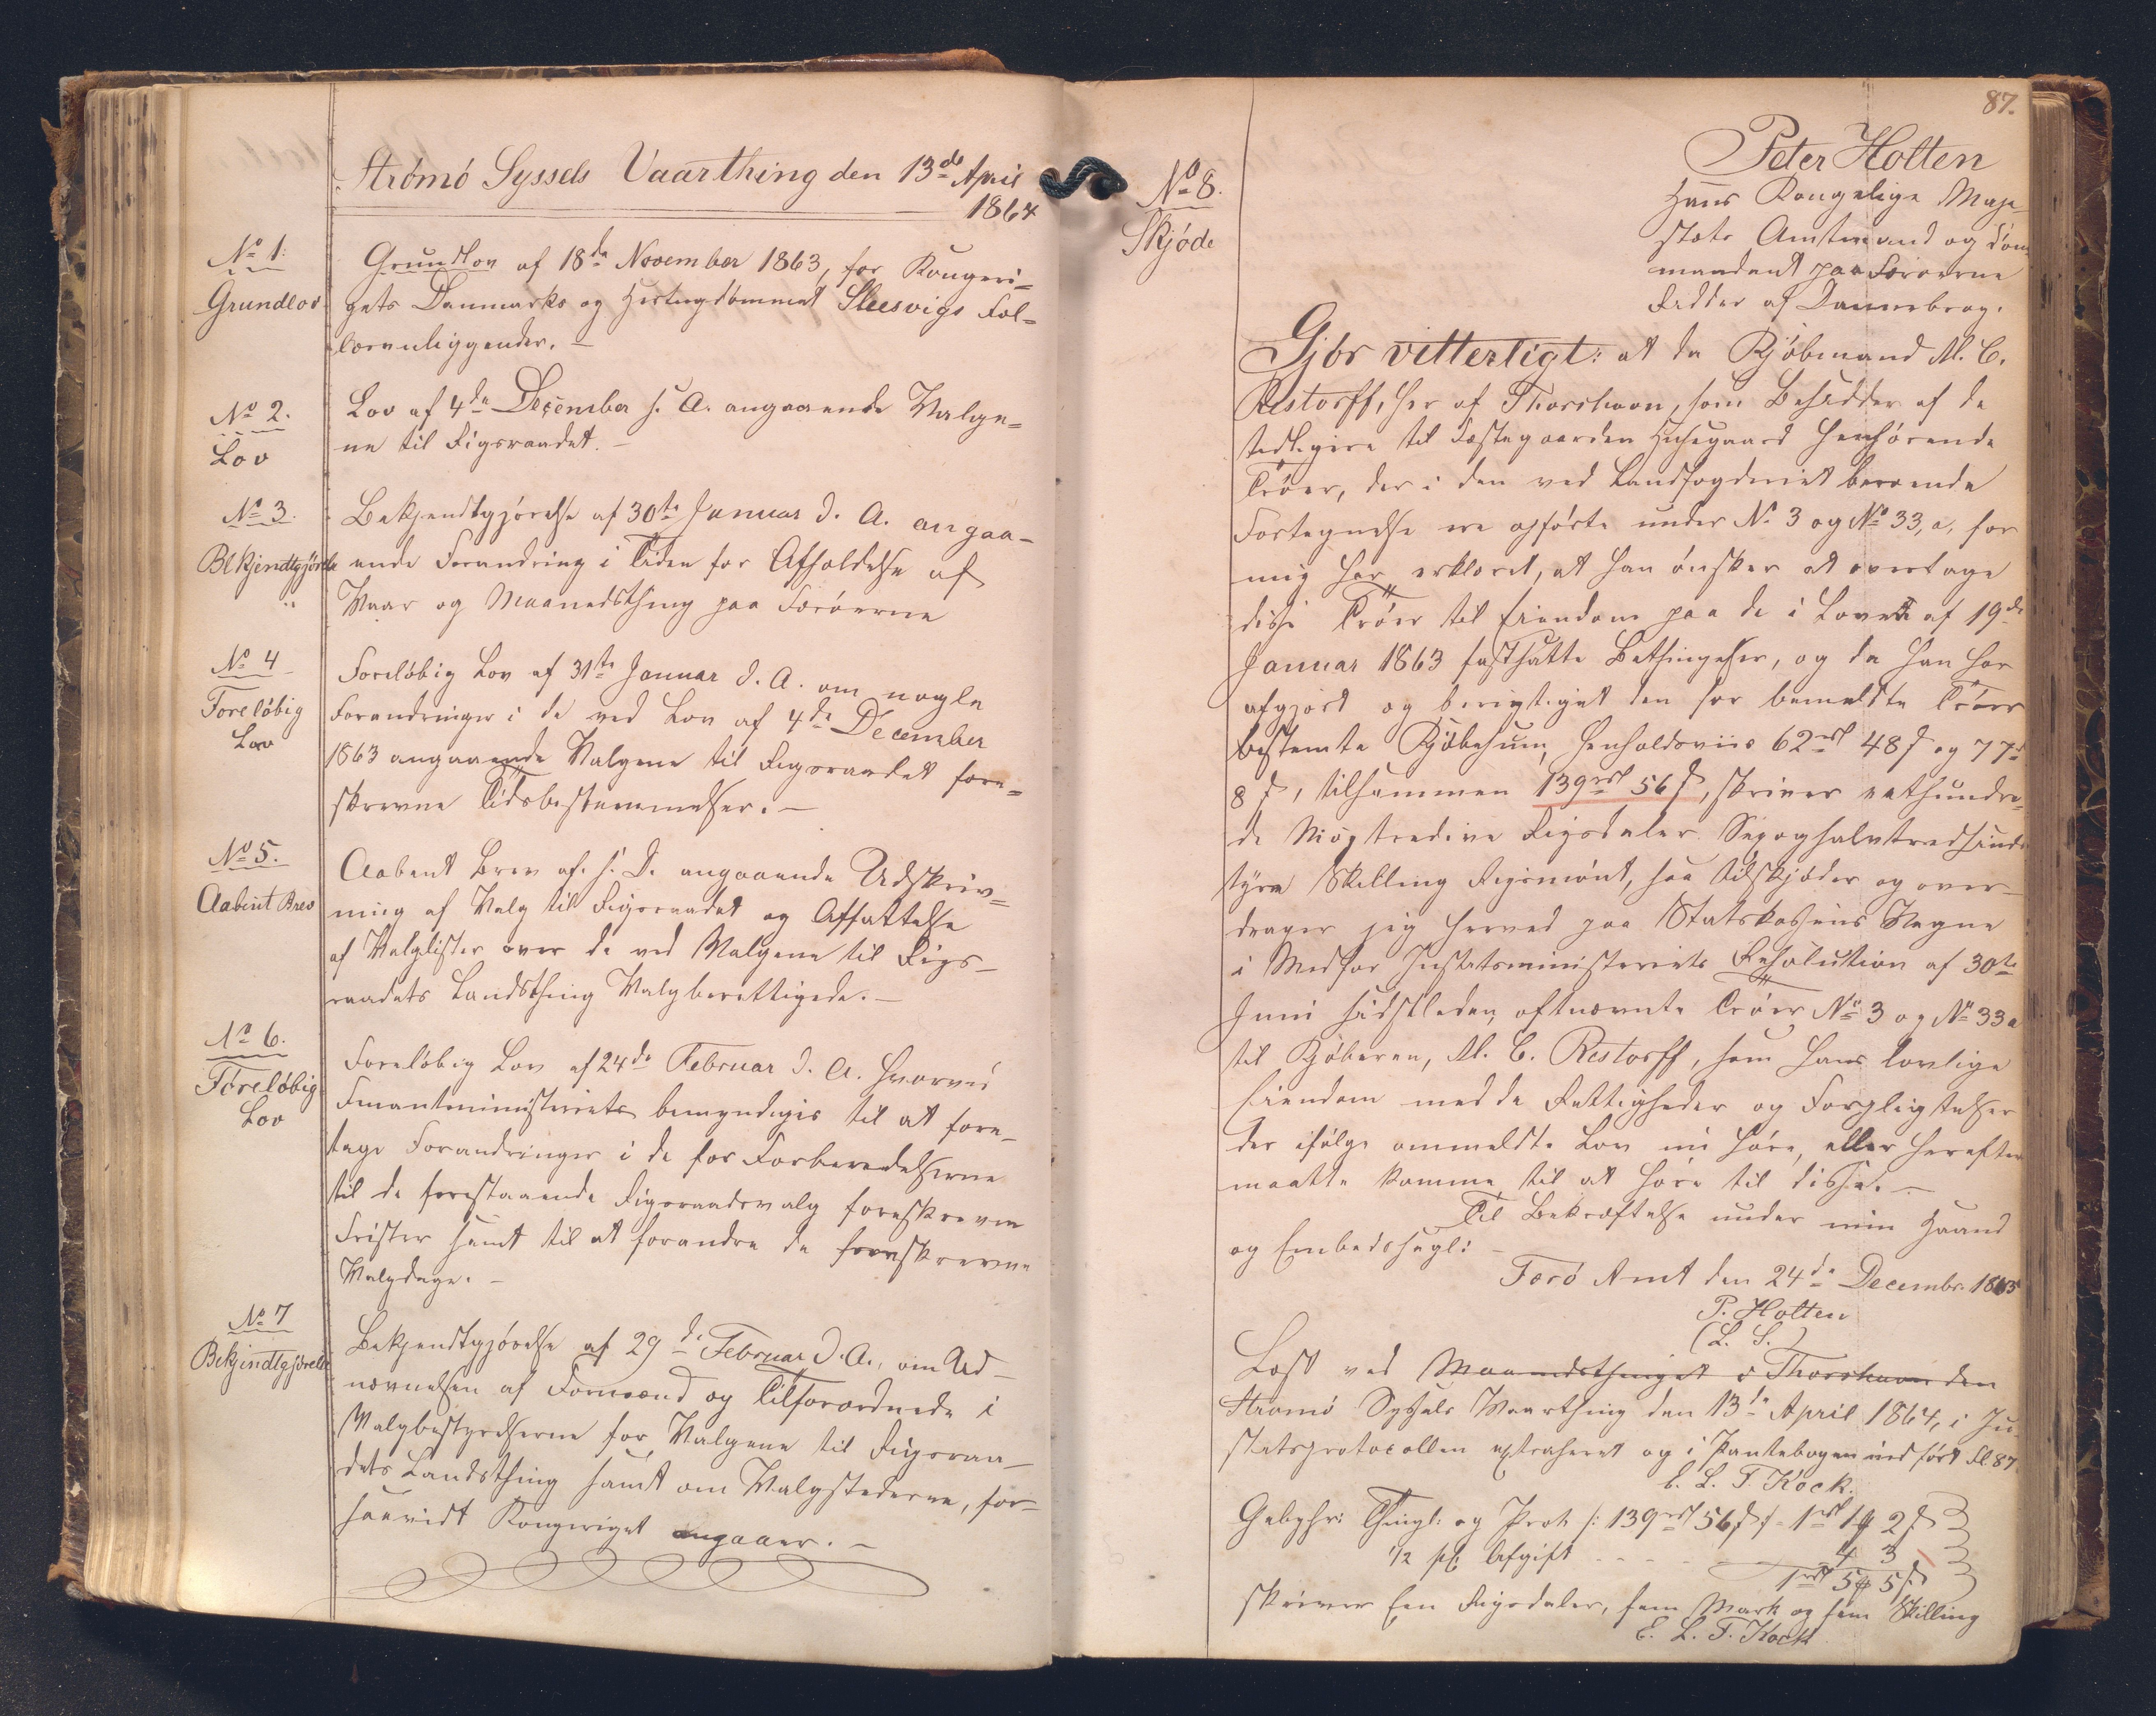 Strömö Syssels Vaarthing den 13de April
1864
No 1.
Grundlov
Grundlov af 18de November 1863, for Kongeri=
gets Danmarks og Hertugdømmet Slesvigs Fæl=
lesanliggender. –
No 2.
Lov
Lov af 4de December s. A. angaaende Valge=
ne til Rigsraadet. –
No 3.
Bekjendtgjørelse
Bekjendtgjørelse af 30te Januar d. A. angaa-
ende Forandring i Tiden for Afholdelse af
Vaar og Maanedsthing paa Færøerne
No 4
Foreløbig
Lov
Foreløbig Lov af 31te Januar d. A. om nogle
Forandringer i de ved Lov af 4de December
1863 angaaende Valgene til Rigsraadet fore=
skrevne Tidsbestemmelser. –
No 5.
Aabent Brev
Aabent Brev af s. D. angaaende Udskriv=
ning af Valg til Rigsraadet og Affattelse
af Valglister over de ved Valgene til Rigs-
raadets Landsthing Valgberettigede. –
No 6.
Foreløbig
Lov
Foreløbig Lov af 24de Februar d. A. hvorved
Finantsministeriets bemyndiges til at fore-
tage Forandringer i de for Forberedelserne
til de forestaaende Rigsraadsvalg foreskrevne
Frister samt til at forandre de foreskrevne
Valgdage. –
No 7
Bekjendtgjørelse
Bekjendtgjørelse af 29de Februar d. A., om Ud-
nævnelsen af Formænd og Tilforordnede i
Valgbestyrelserne for Valgene til Rigsraa-
dets Landsthing samt om Valgstederne, for-
saavidt Kongeriget angaaer. –
87.
No 8.
Skjøde
Peter Holten
Hans Kongelige Maje-
stæts Amtmand og Com-
mandant paa Færøerne
Ridder af Dannebrog.
Gjör vitterligt: at da Kjøbmand M. C.
Restorff, her af Thorshavn, som Besidder af de
tidligere til Fæstegaarden Husegaard henhørende
Trøer, der i den ved Landfogderiet beroende
Fortegnelse ere opførte under No 3 og No 33,a, for
mig har erklæret, at han ønsker at overtage
disse Trøer til Eiendom paa de i Loven af 19de
Januar 1863 fastsatte Bethingelser, og da han har
afgjort og berigtiget den for bemeldte Trøer
bestemte Kjøbesum, henholdsviis 62rd 48ß og 77rd
8ß, tilsammen 139rd 56ß, skriver eethundre-
de Niogtredive Rigsdaler Sexoghalvtredsinds
tyve Skilling Rigsmønt, saa tilskjøder og over-
drager jeg herved paa Statskassens Vegne
i Medfør Justitsministeriets Resolution af 30te
Juni sidstleden, oftnævnte Trøer No 3 og No 33a
til Kjøberen, M. C. Restorff, som hans lovlige
Eiendom med de Rettigheder og Forpligtelser
der ifølge ommeldte Lov nu høre, eller herefter
maatte komme til at høre til disse. –
Til Bekræftelse under min Haand
og Embedssegl: –
Færö Amt den 24de Decembr. 1863
P. Holten
(L. S.)
Læst ved Maanedsthinget i Thorshavn den
Strømø Syssels Vaarthing den 13de April 1864, i Ju-
stitsprotocollen extraheret og i Pantebogen indført Fl. 87.
E. L. T. Kock.
Gebyhr: Thingl: og Prot. /: 139rd 56ß :/ - 1rd 1# 2ß
1/2 pC. Afgift - - - - 4 3
1rd 5# 5ß
skriver Een Rigsdaler, fem Mark og fem Skilling
E. L. T. Kock